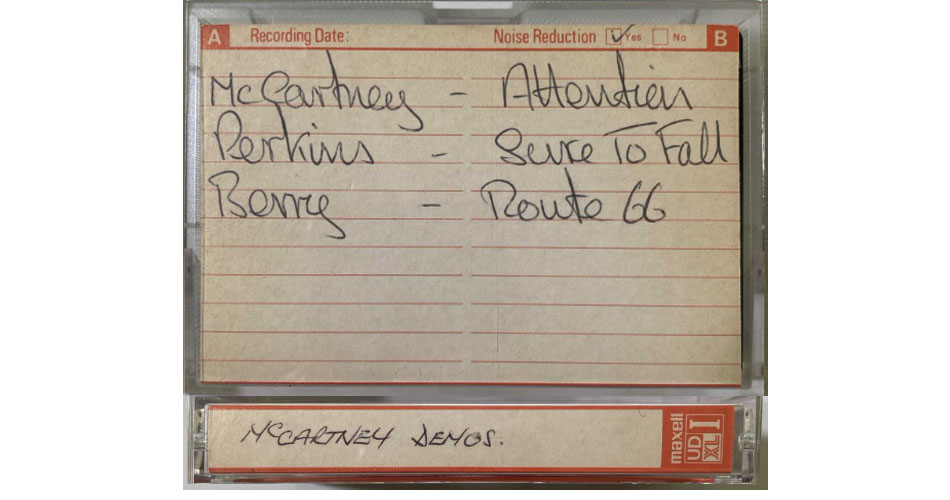 A Recording Date: Noise Reduction Yes No B
McCartney - Attention
Perkins - Sure To Fall
Berry - Route 66
McCARTNEY DEMOS.
maxell
UD
XL I